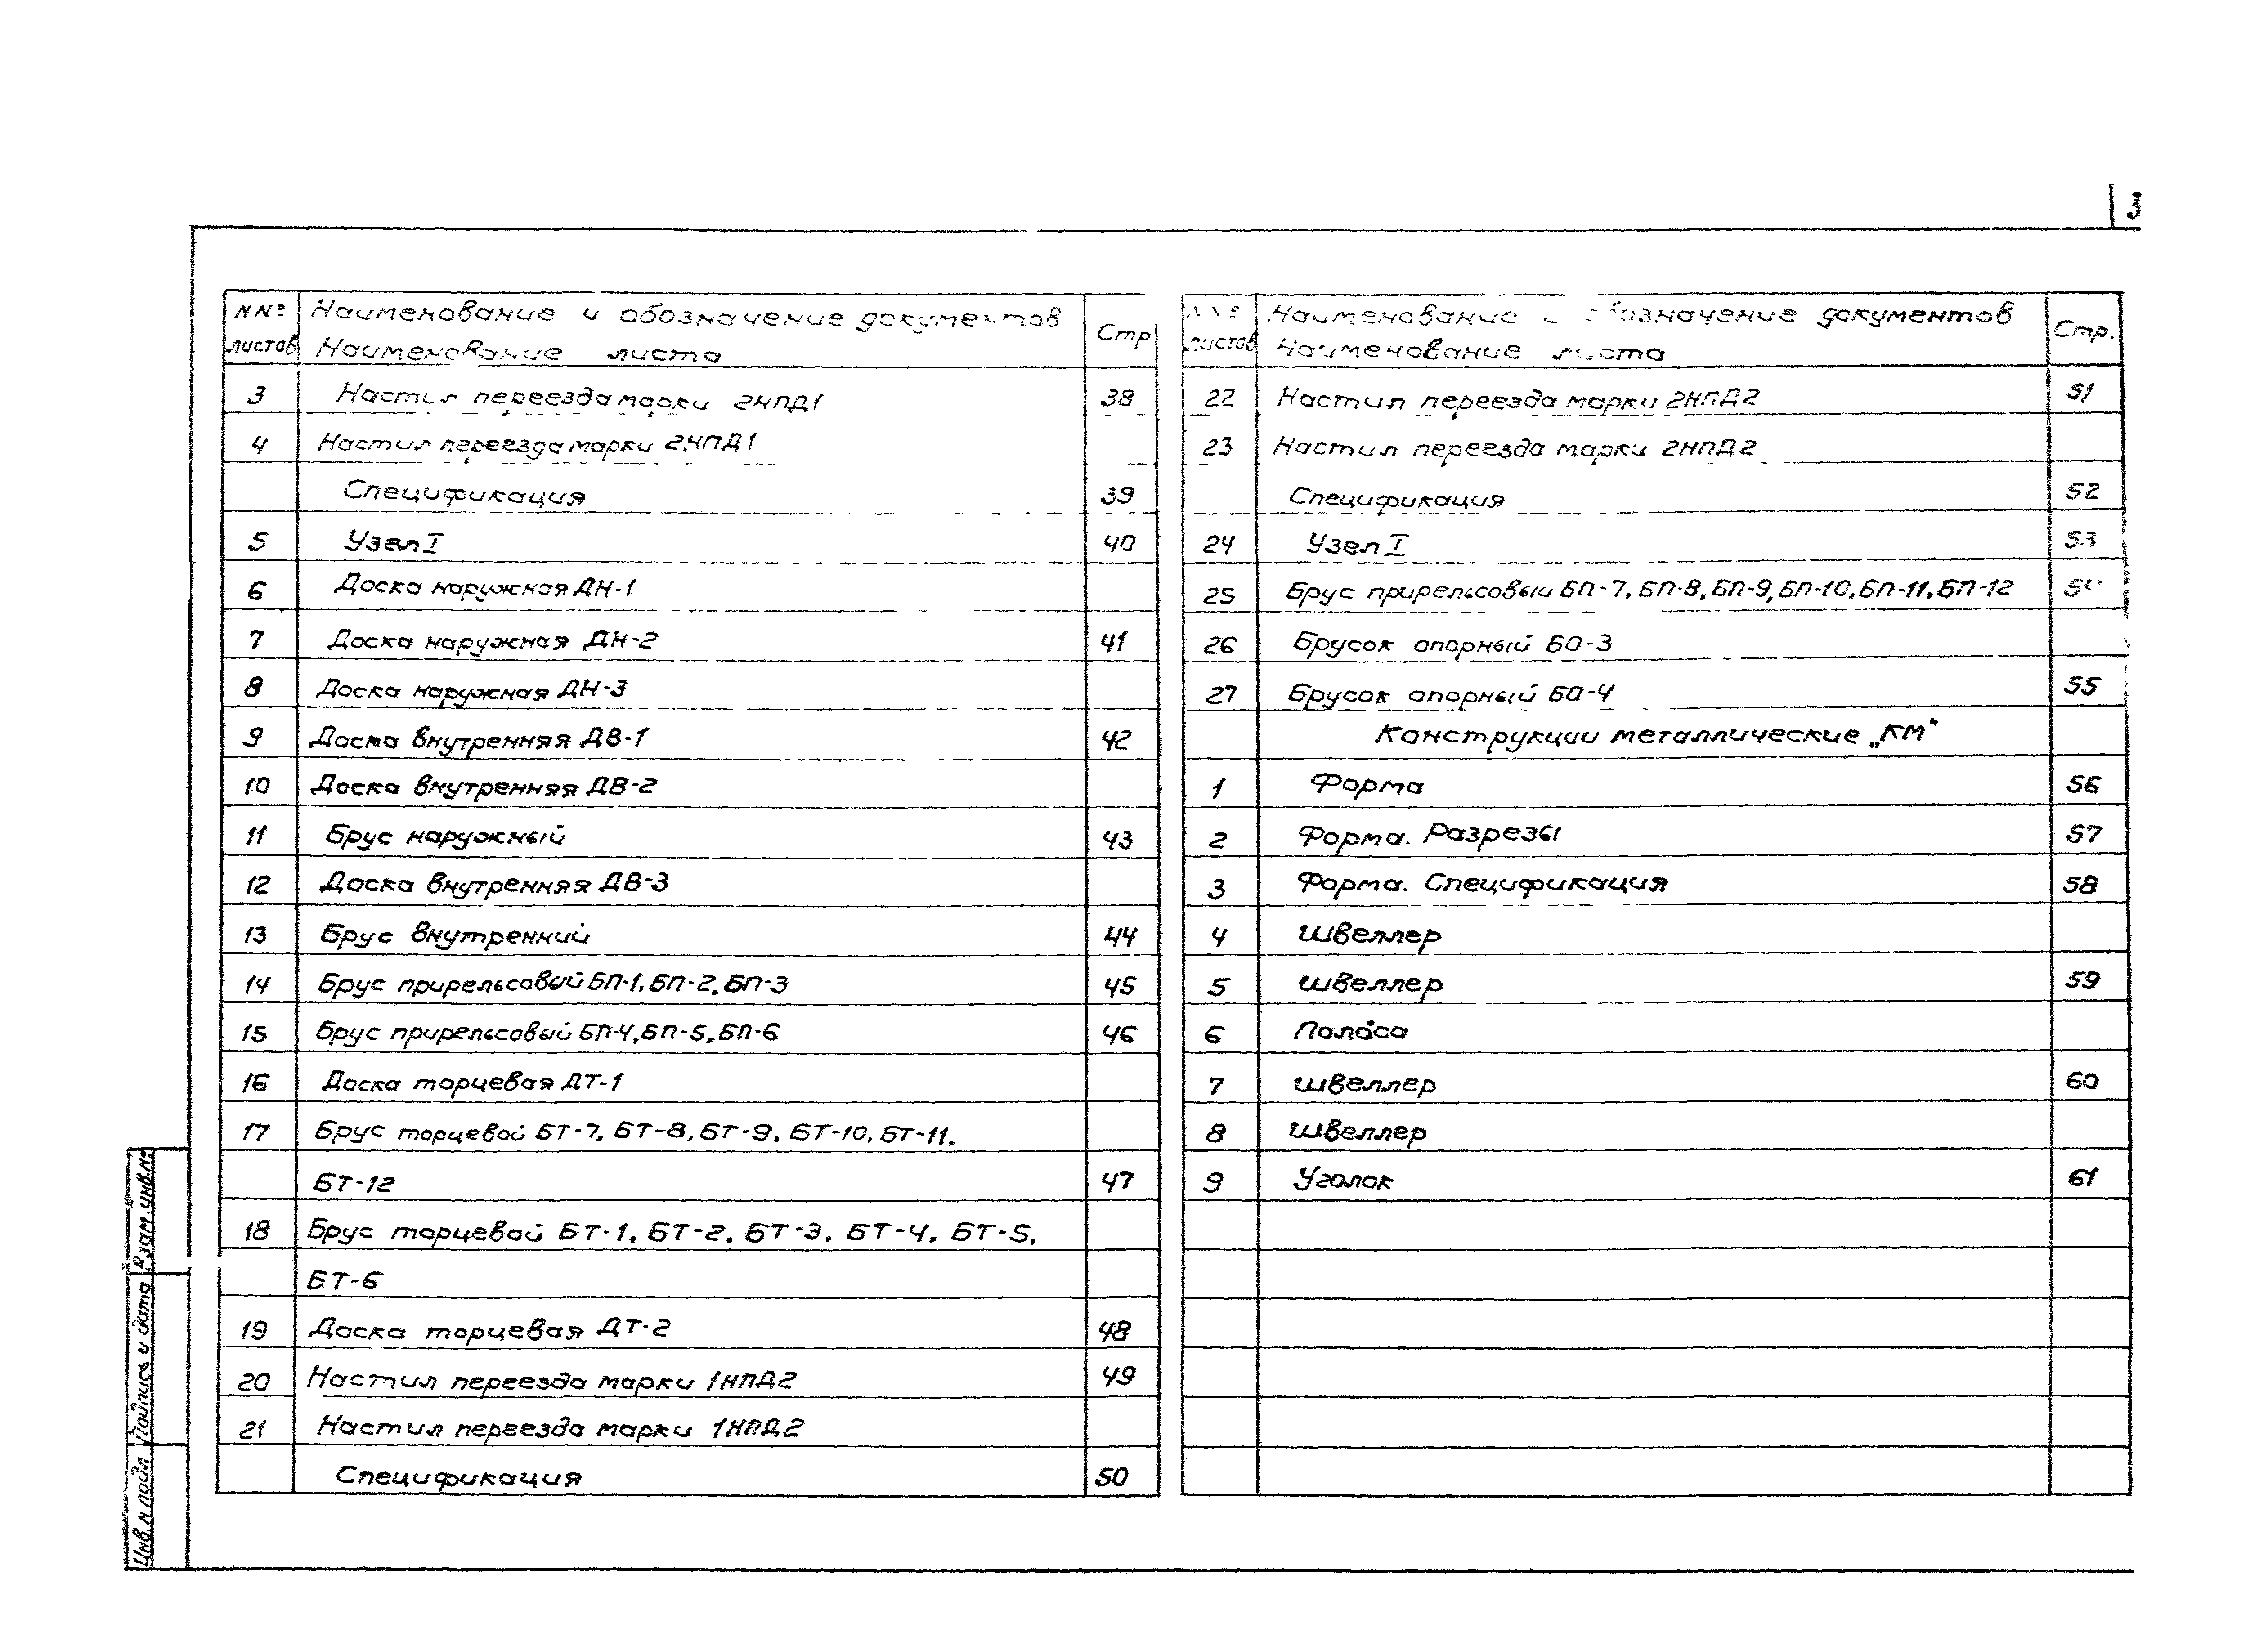 NNº Наименование и обозначение документов Стр
листов Наименование листа
3 Настил переезда марки 2НПД1 38
4 Настил переезда марки 2НПД1
Спецификация 39
5 Узел I 40
6 Доска наружная ДН-1
7 Доска наружная ДН-2 41
8 Доска наружная ДН-3
9 Доска внутренняя ДВ-1 42
10 Доска внутренняя ДВ-2
11 Брус наружный 43
12 Доска внутренняя ДВ-3
13 Брус внутренний 44
14 Брус прирельсовый БП-1, БП-2, БП-3 45
15 Брус прирельсовый БП-4, БП-5, БП-6 46
16 Доска торцевая ДТ-1
17 Брус торцевой БТ-7, БТ-8, БТ-9, БТ-10, БТ-11,
БТ-12 47
18 Брус торцевой БТ-1, БТ-2, БТ-3, БТ-4, БТ-5,
БТ-6
19 Доска торцевая ДТ-2 48
20 Настил переезда марки 1НПД2 49
21 Настил переезда марки 1НПД2
Спецификация 50
Наименование обозначение документов Стр.
листов Наименование листа
22 Настил переезда марки 2НПД2 51
23 Настил переезда марки 2НПД2
Спецификация 52
24 Узел I 53
25 Брус прирельсовый БП-7, БП-8, БП-9, БП-10, БП-11, БП-12
26 Брусок опорный БО-3
27 Брусок опорный БО-4 55
Конструкции металлические „КМ“
1 Форма 56
2 Форма. Разрезы 57
3 Форма. Спецификация 58
4 Швеллер
5 Швеллер 59
6 Полоса
7 Швеллер 60
8 Швеллер
9 Уголок 61
Взам. инв. №
Подпись и дата
Инв. N подл